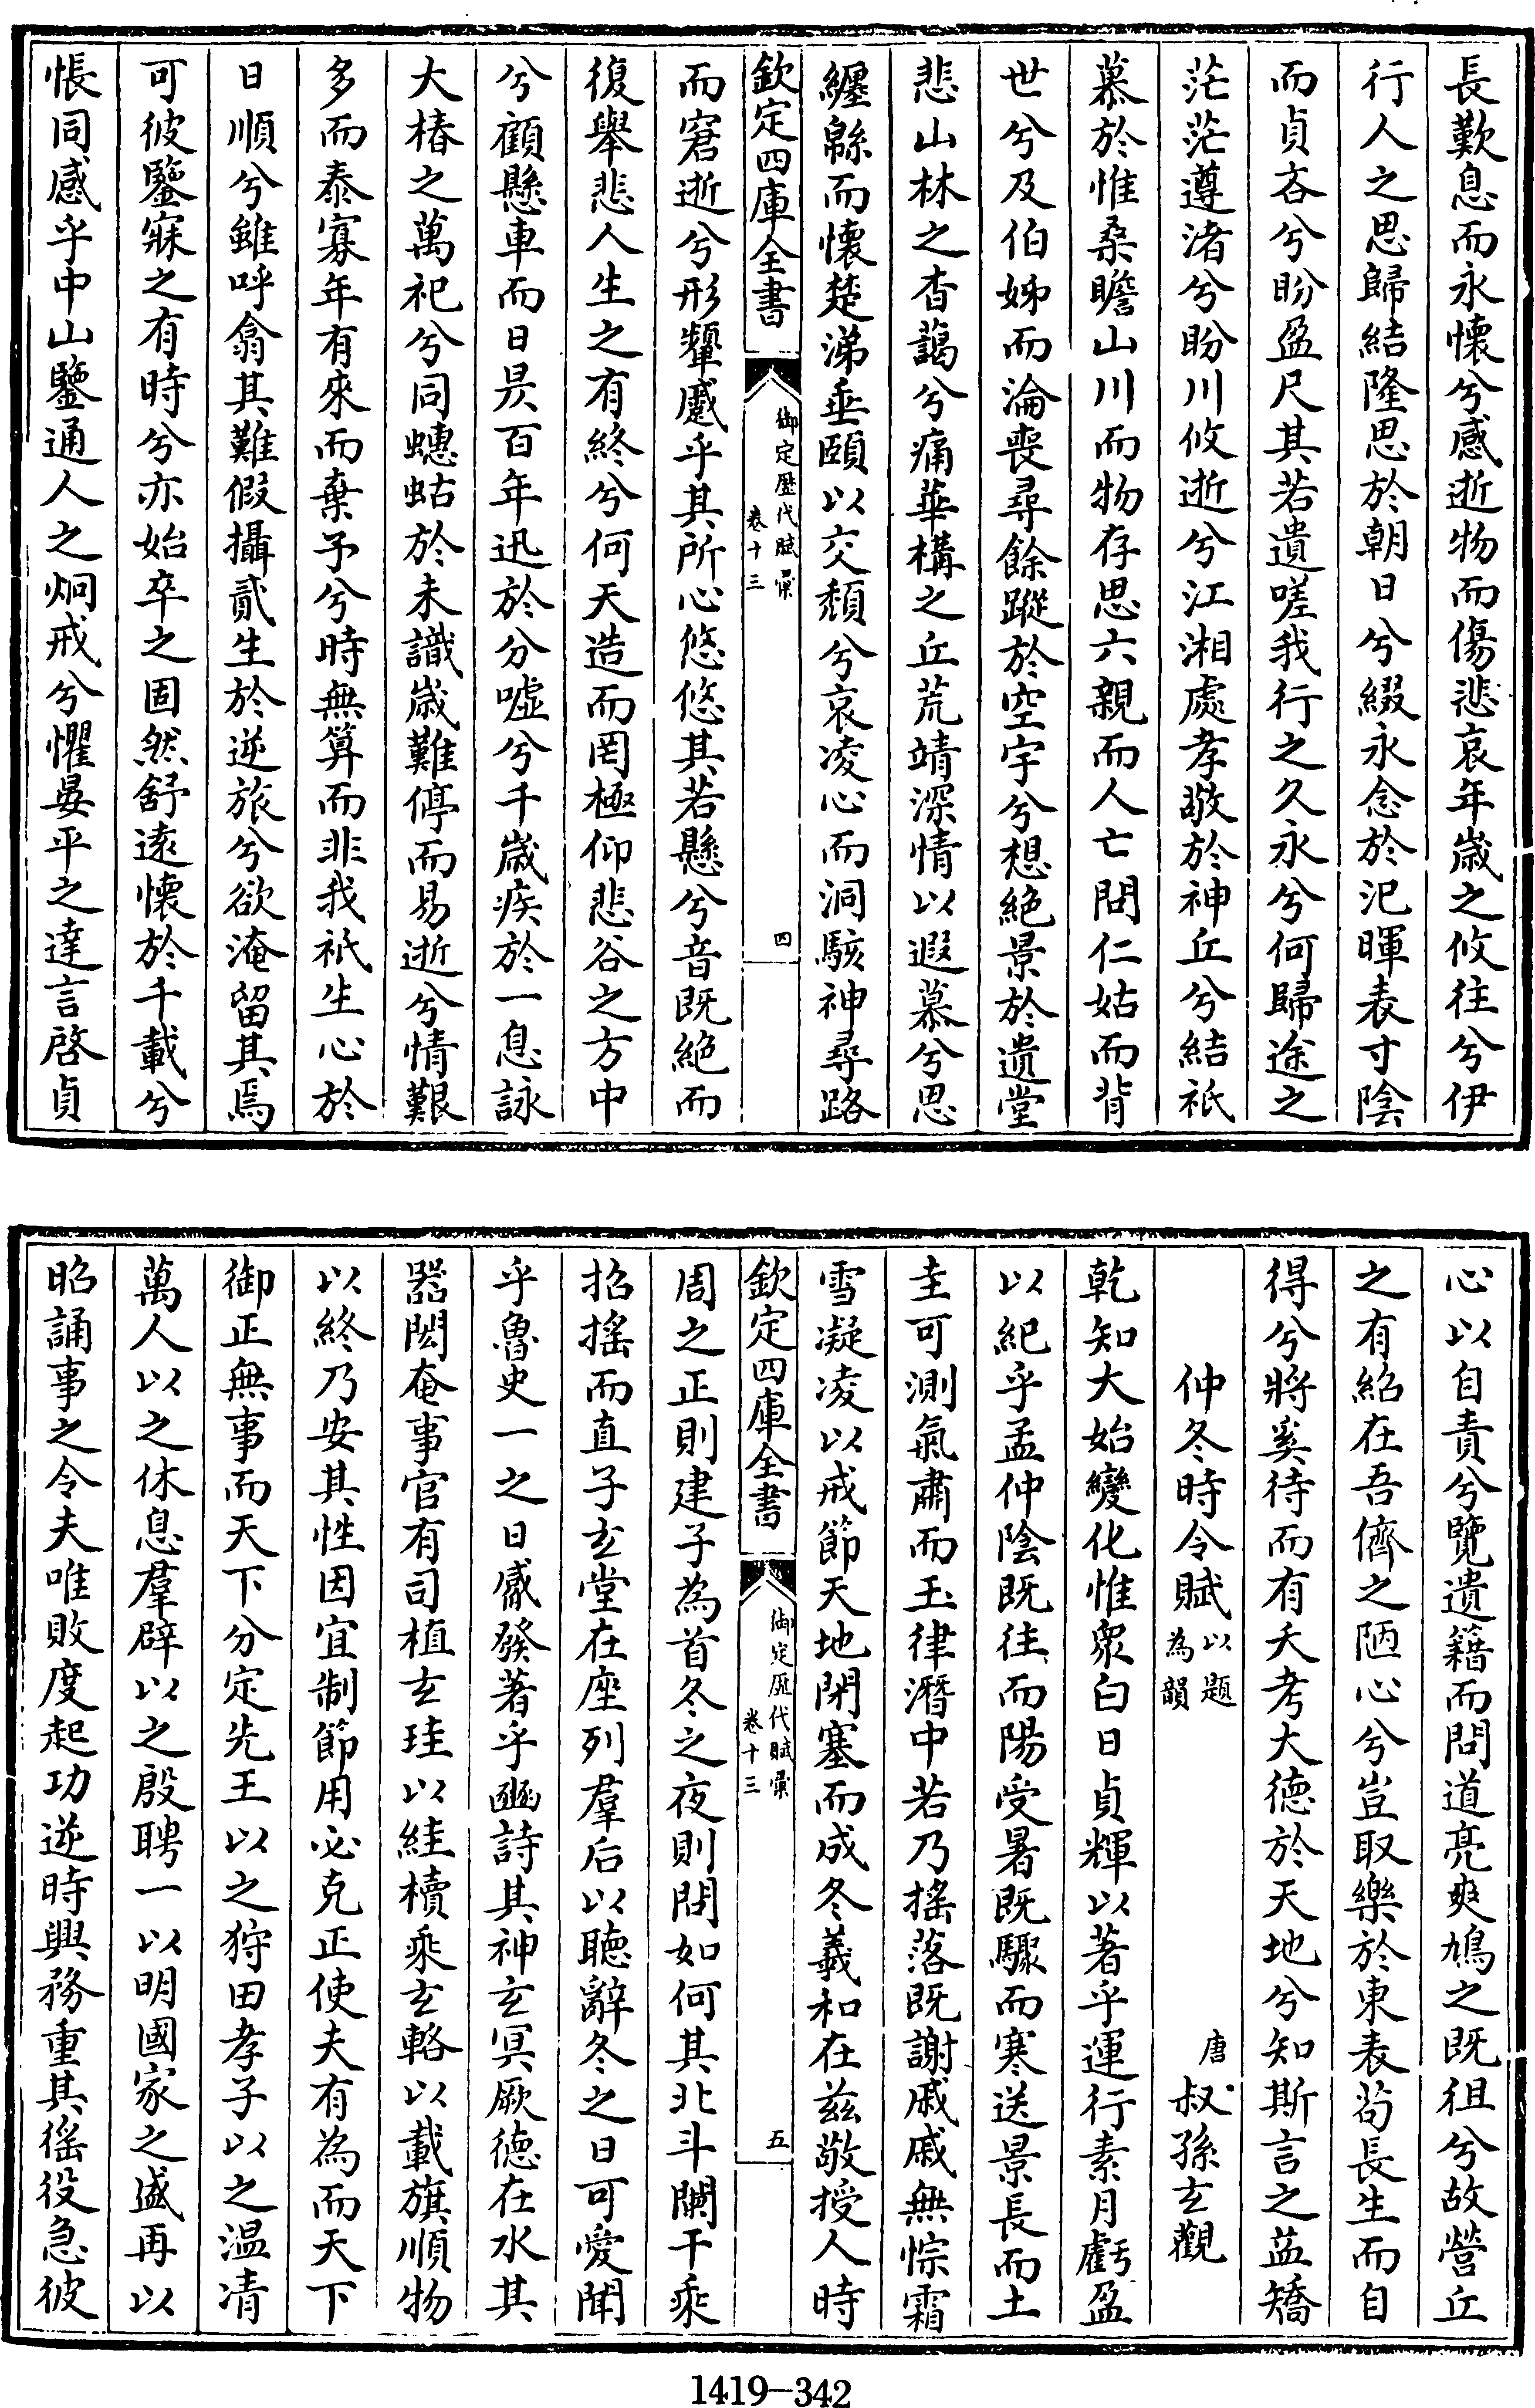 長歎息而永懷兮感逝物而傷悲哀年歲之攸往兮伊
行人之思歸結隆思於朝日兮綴永念於汜暉表寸陰
而貞吝兮盼盈尺其若遺嗟我行之久永兮何歸途之
茫茫遵渚兮盼川攸逝兮江湘處孝敬於神丘兮結祇
慕於惟桑瞻山川而物存思六親而人亡問仁姑而背
世兮及伯姊而淪喪尋餘蹤於空宇兮想絶景於遺堂
悲山林之杳藹兮痛華構之丘荒靖深情以遐慕兮思
纏緜而懷楚涕垂頤以交頽兮哀凌心而洞駭神尋路
欽定四庫全書
御定歷代賦彙
卷十三
四
而窘逝兮形顰蹙乎其所心悠悠其若懸兮音既絶而
復舉悲人生之有終兮何天造而罔極仰悲谷之方中
兮顧懸車而日昃百年迅於分噓兮千歲疾於一息詠
大椿之萬祀兮同蟪蛄於未識歲難停而易逝兮情艱
多而泰寡年有來而棄予兮時無算而非我祇生心於
日順兮雖呼翕其難假攝貳生於逆旅兮欲淹留其焉
可彼鑒寐之有時兮亦始卒之固然舒遠懷於千載兮
悵同感乎中山鑒通人之炯戒兮懼晏平之達言啓貞
心以自責兮覽遺籍而問道亮爽鳩之既徂兮故營丘
之有紹在吾儕之陋心兮豈取樂於東表茍長生而自
得兮將奚待而有夭考大德於天地兮知斯言之益矯
仲冬時令賦
以題
為韻
唐
叔孫玄觀
乾知大始變化惟衆白日貞輝以著乎運行素月虧盈
以紀乎孟仲陰既往而陽受暑既驟而寒送景長而土
圭可測氣肅而玉律潛中若乃搖落既謝戚戚無悰霜
雪凝凌以戒節天地閉塞而成冬羲和在兹敬授人時
欽定四庫全書
御定歷代賦彙
卷十三
五
周之正則建子為首冬之夜則問如何其北斗闌干乘
招搖而直子玄堂在座列羣后以聽辭冬之日可愛聞
乎魯史一之日觱發著乎豳詩其神玄冥厥德在水其
器閎奄事官有司植玄珪以絓櫝乘玄輅以載旗順物
以終乃安其性因宜制節用必克正使夫有為而天下
御正無事而天下分定先王以之狩田孝子以之温凊
萬人以之休息羣辟以之殷聘一以明國家之盛再以
昭誦事之令夫唯敗度起功逆時興務重其徭役急彼
1419-342